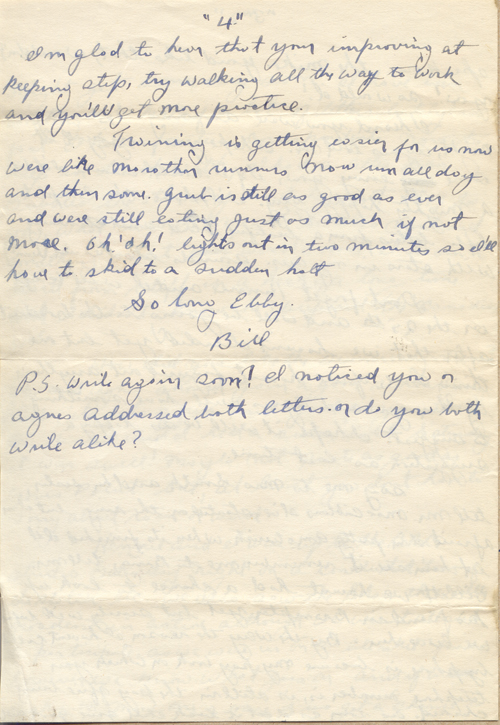 "4"
I'm glad to hear that your improving at
keeping step, try walking all the way to work
and you'll get more practice.
Training is getting easier for us now
were like marathon runners now run all day
and then some. grub is still as good as ever
and were still eating just as much if not
more. Oh! oh! lights out in two minutes so I'll
have to skid to a sudden halt
So long Ebby.
Bill
P.S. write again soon! I noticed you or
agnes addressed both letters. or do you both
write alike?